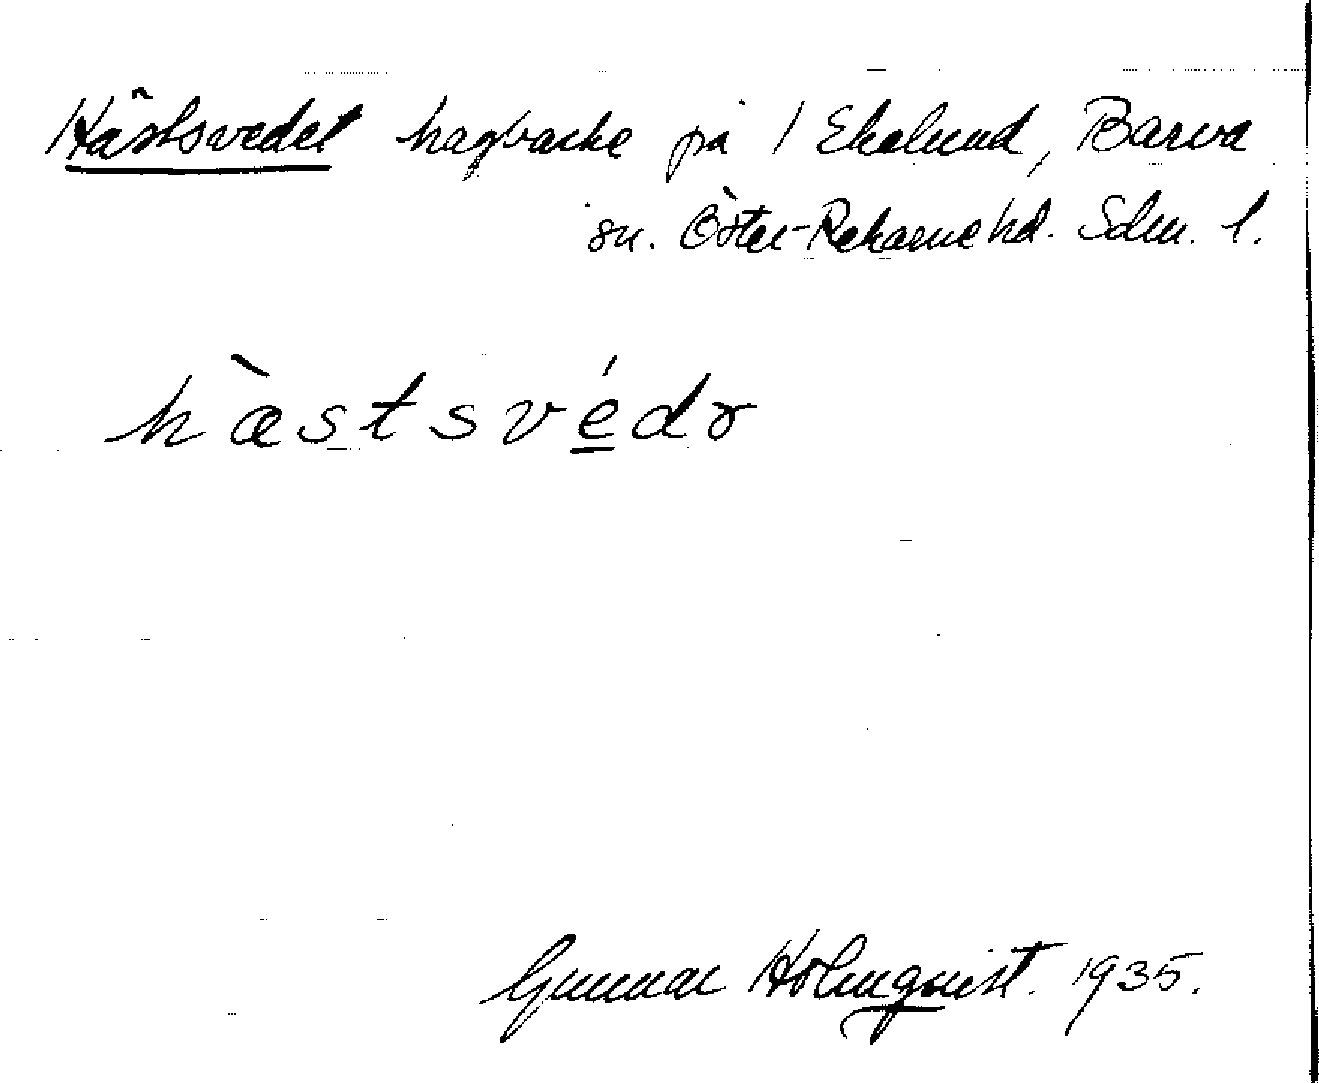 Hästsvedet hagbacke på 1 Ekalund, Barva
sn. Öster-Rekarne hd. Sdm. l.
hæ̀stsvédə
Gunnar Holmquist. 1935.